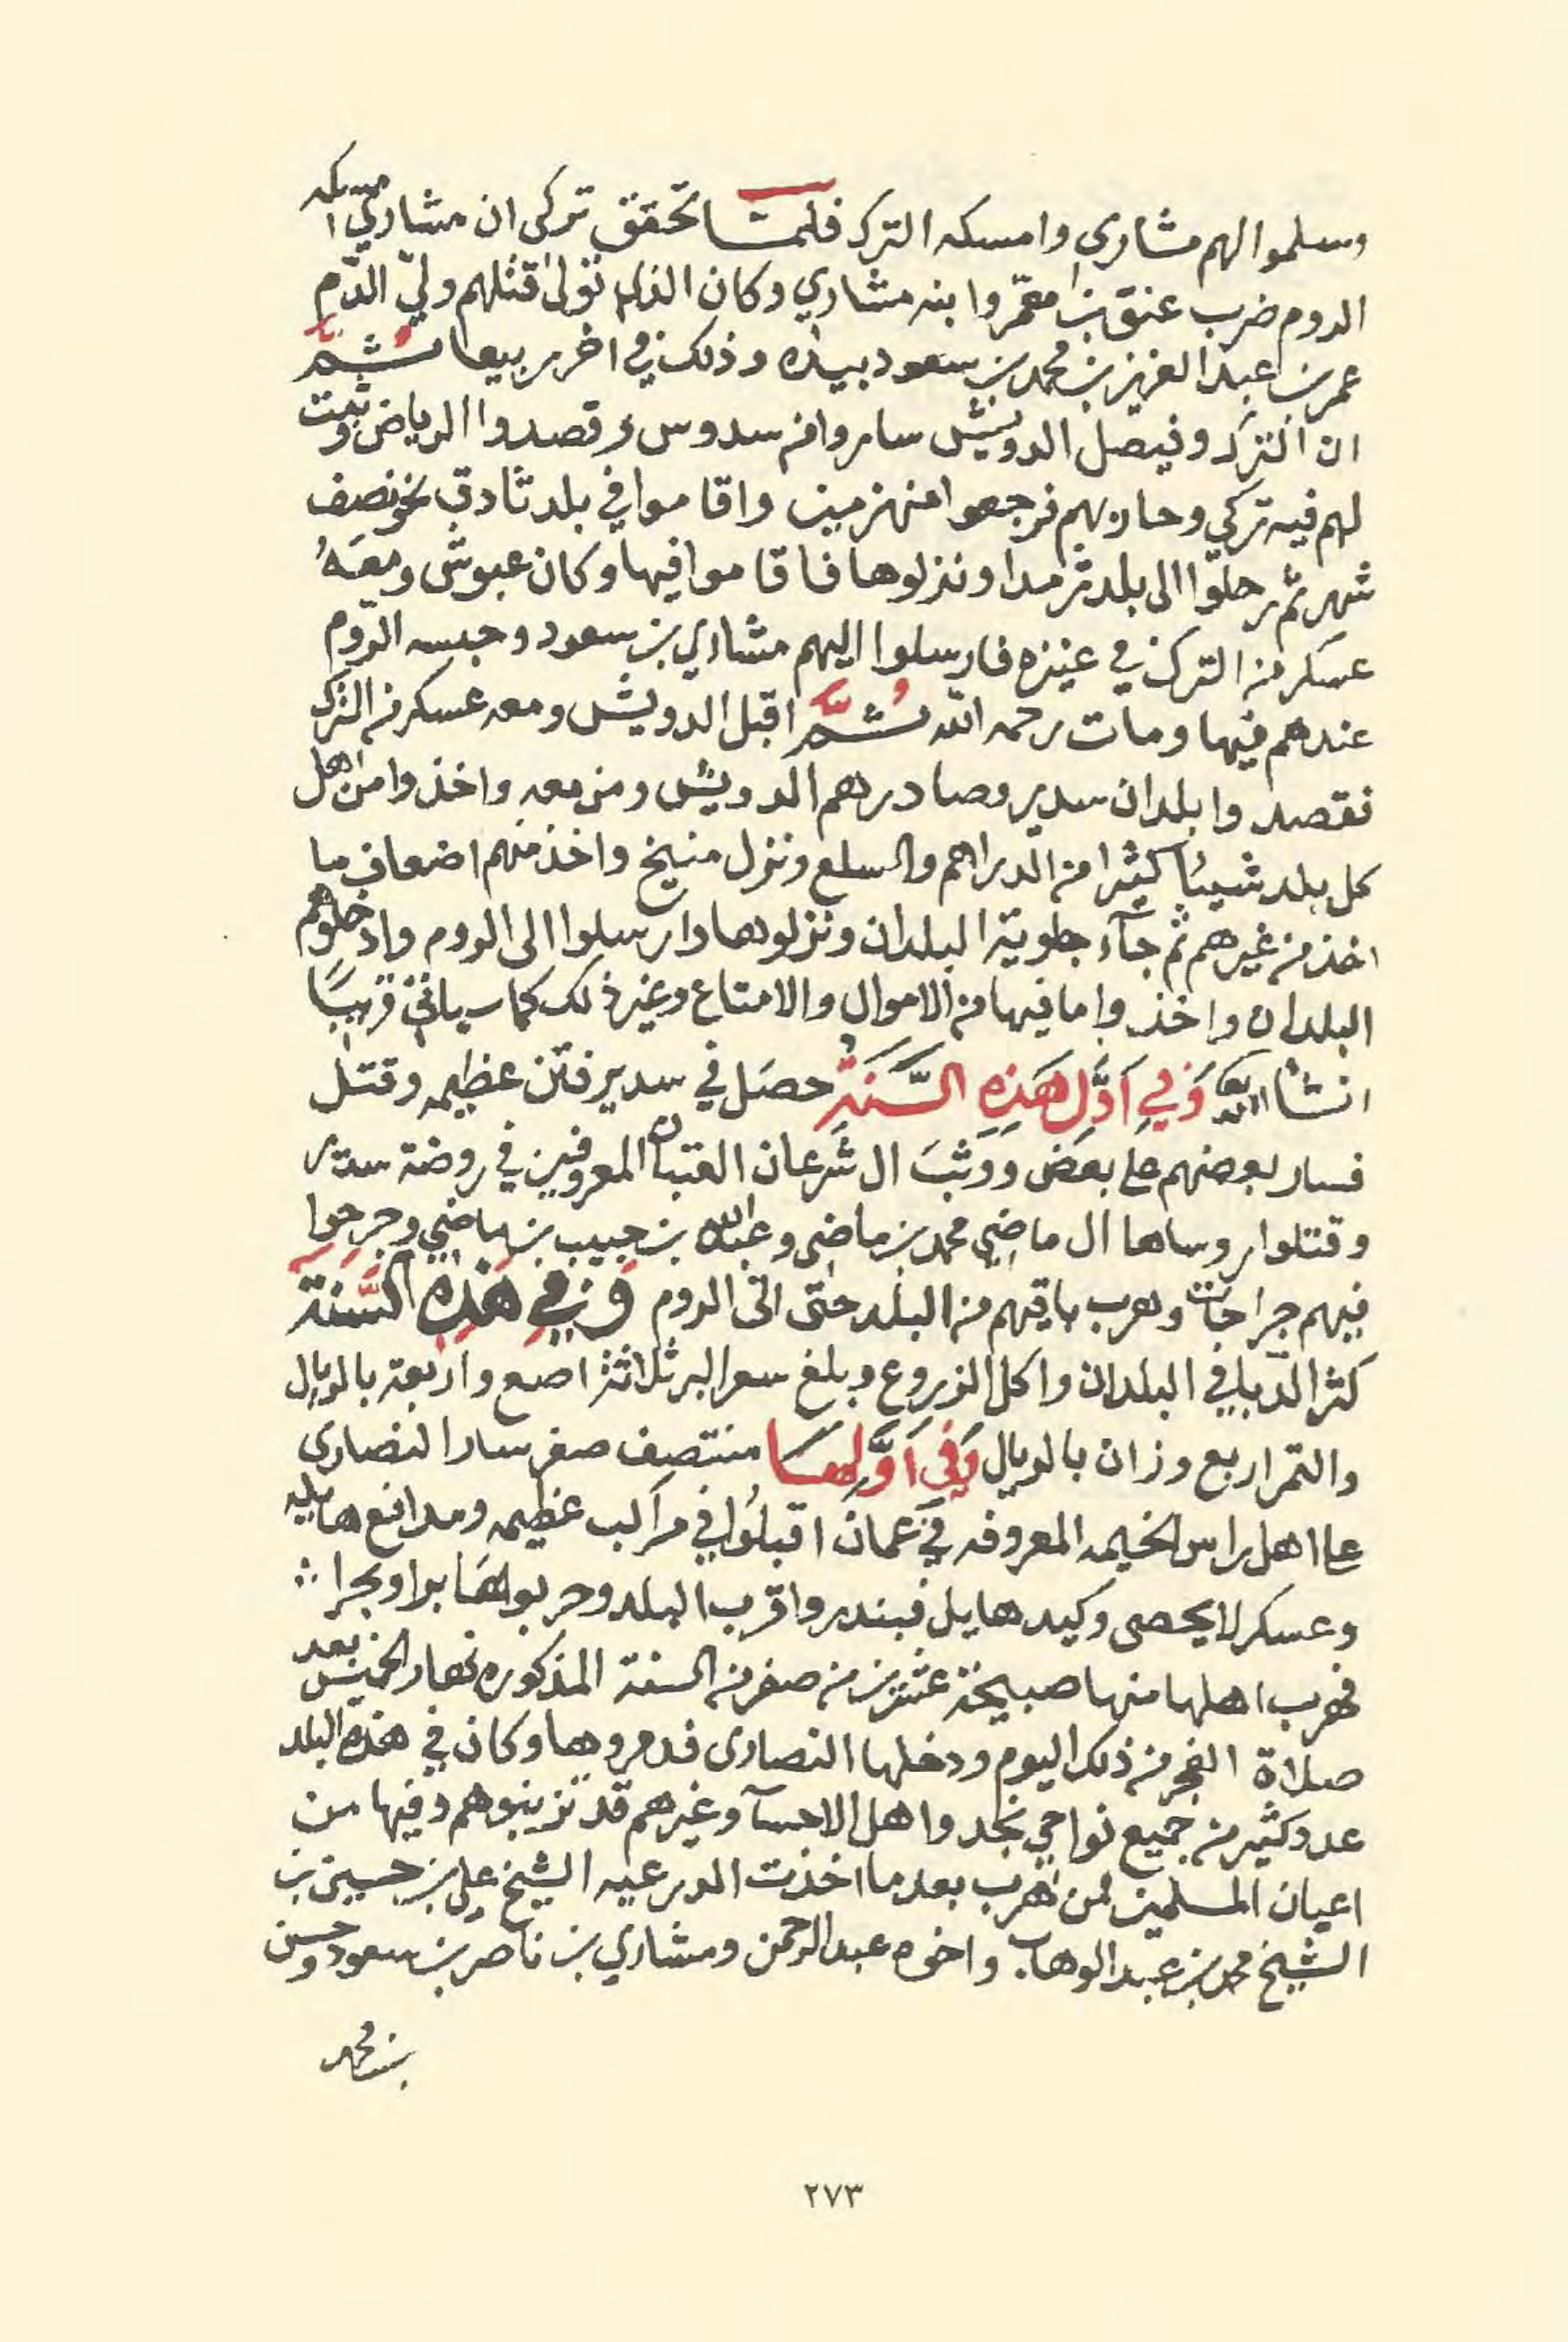 وسلموا الهم مشاري وامسكه الترك فلما تحقق تركى ان مشاري امسكه
الروم ضرب عنق بن معمر وابنه مشاري وكان الذي تولى قتلهم ولي الدم
عمر بن عبد العزيز بن محمد بن سعود بيده وذلك في اخر ربيعا ثم
ان الترك وفيصل الدويش ساروا من سدوس وقصدوا الرياض وثبت
لهم فيه تركي وحاربهم فرجعوا منهزمين واقاموا في بلد ثادق نحو نصف
شهر ثم رحلوا الى بلد ثرمدا ونزلوها فاقاموا فيها وكان عبوش ومعه
عسكر من الترك في عنيزه فارسلوا اليهم مشاري بن سعود وحبسه الروم
عندهم فيها ومات رحمه الله ثم اقبل الدويش ومعه عسكر من الترك
فقصدوا بلدان سدير وصادرهم الدويش ومن معه واخذوا من اهل
كل بلد شيئا كثيرا من الدراهم والسلع ونزل منيخ واخذ منهم اضعاف ما
اخذ من غيرهم ثم جآء جلوية البلدان ونزلوها وارسلوا الى الروم وادخلوهم
البلدان واخذوا ما فيها من الاموال والامتاع وغير ذلك كما سياتي قريبًا
انشا الله وَفي اَوَّلِ هَذِهِ السَّنَةِ حصَل في سدير فتن عظيمه وقتل
فسار بعضهم على بعض ووثبَ ال شرعان المعروفين في روضة سدير
وقتلوا روساها ال ماضي محمد بن ماضي وعبدالله بن حبيب بن ماضي وجرحوا
فيهم جراحات وهرب باقيهم من البلد حتى اتى الروم وفي هذه السنة
كثر الدبا في البلدان واكل الزروع وبلغ سعر البر ثلاثة اصع واربعة بالريال
والتمر اربع وزان بالريال وَفي اَوَّلِهَا منتصف صفر سار النصارى
على اهل راس الخيمه المعروفه في عمان اقبلوا في مراكب عظيمه ومدافع هايله
وعسكر لا يحصى وكيد هايل فبندروا قرب البلد وحربوها برا وبحرا
فهرب اهلها منها صبيحة عشرين من صفر من السنة المذكوره نهار الخميس بعد
صلاة الفجر من ذلك اليوم ودخلها النصارى فدمروها وكان في هذه البلد
عدد كثير من جميع نواحي نجد واهل الاحسآ وغيرهم قد تزبنوهم وفيها من
اعيان المسلمين لمن هرب بعد ما اخذت الدرعيه الشيخ علي بن حسين بن
الشيخ محمد بن عبد الوهاب واخوه عبد الرحمن ومشاري بن ناصر بن سعود وحسن
بن محمد
٢٧٣